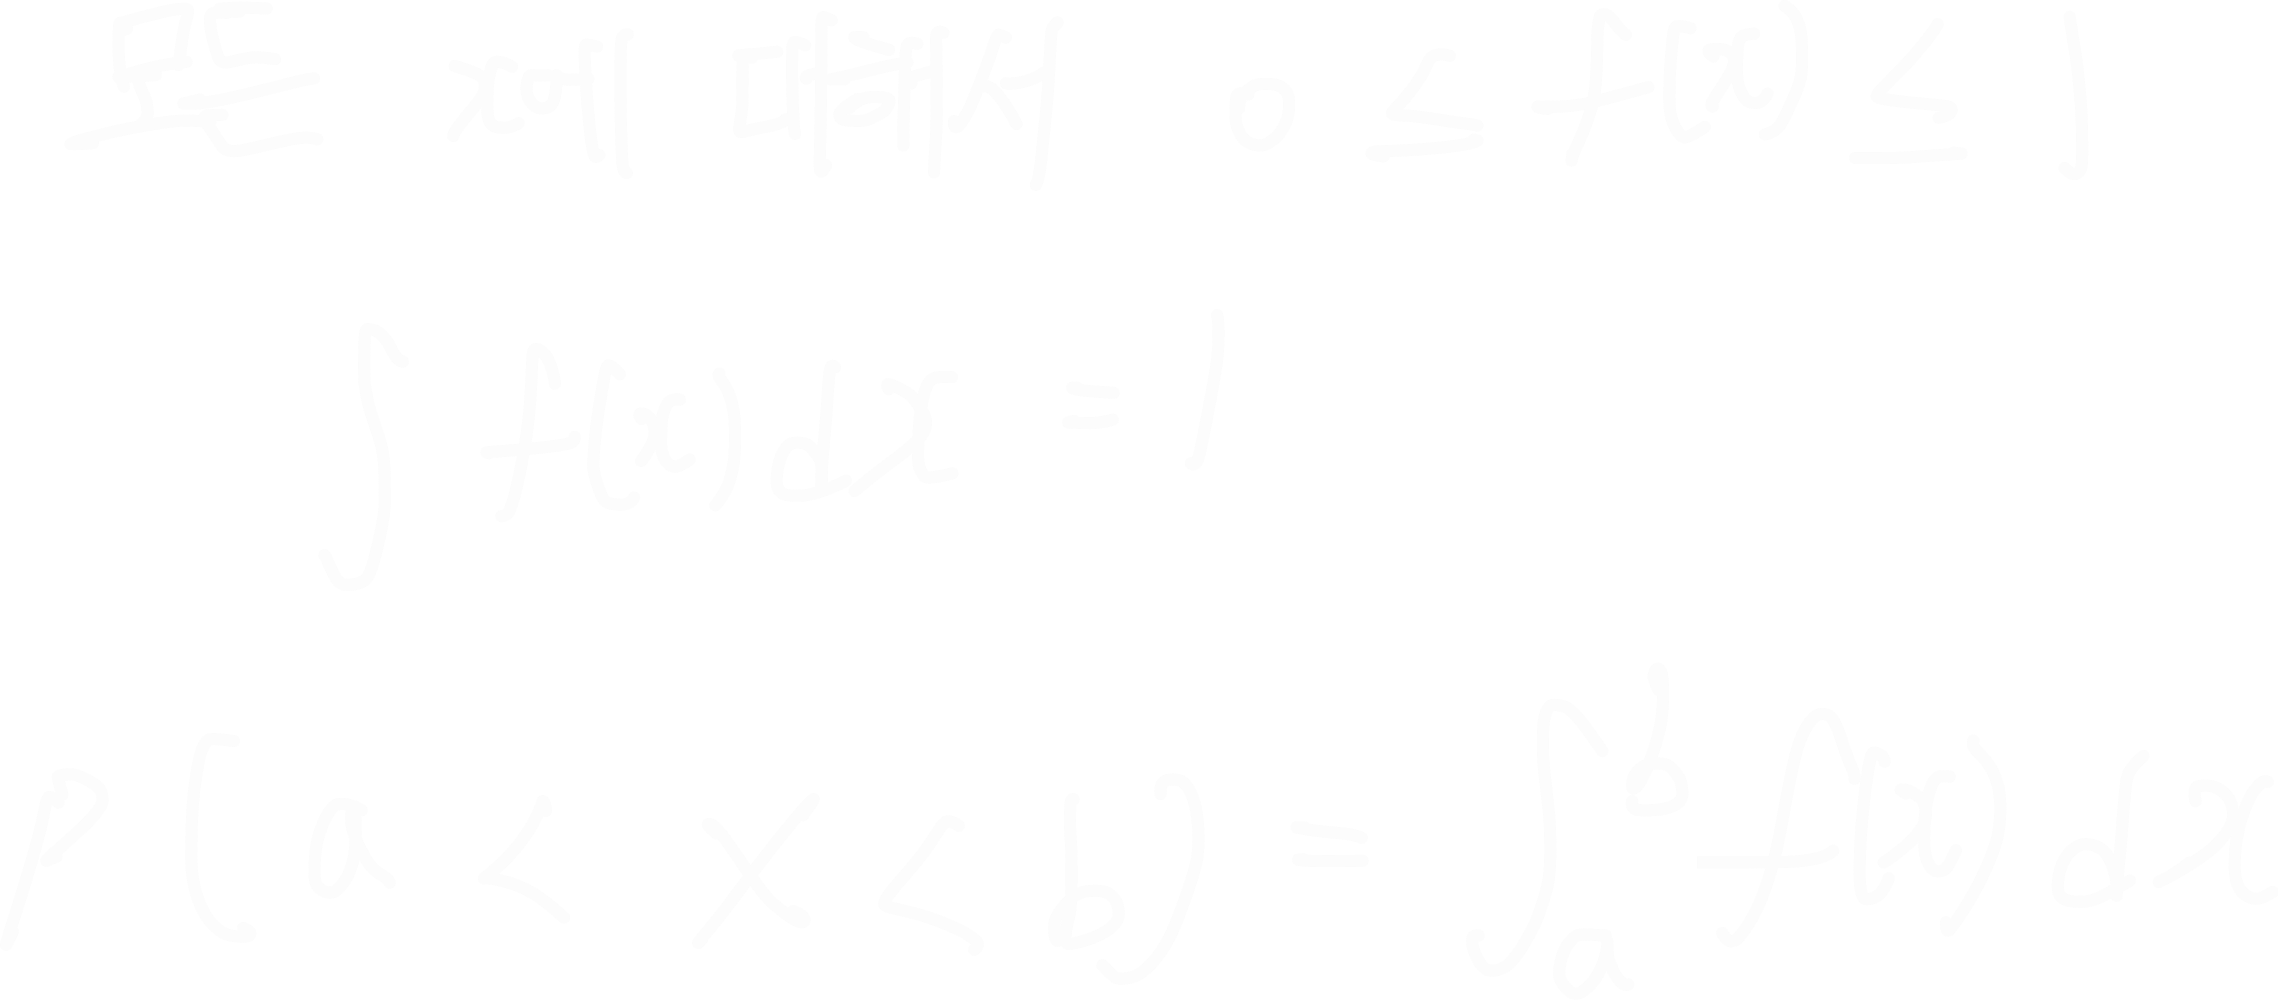 모든 x에 대해서 0 ≤ f(x) ≤ 1
∫ f(x)dx = 1
P(a < X < b) = ∫_a^b f(x)dx